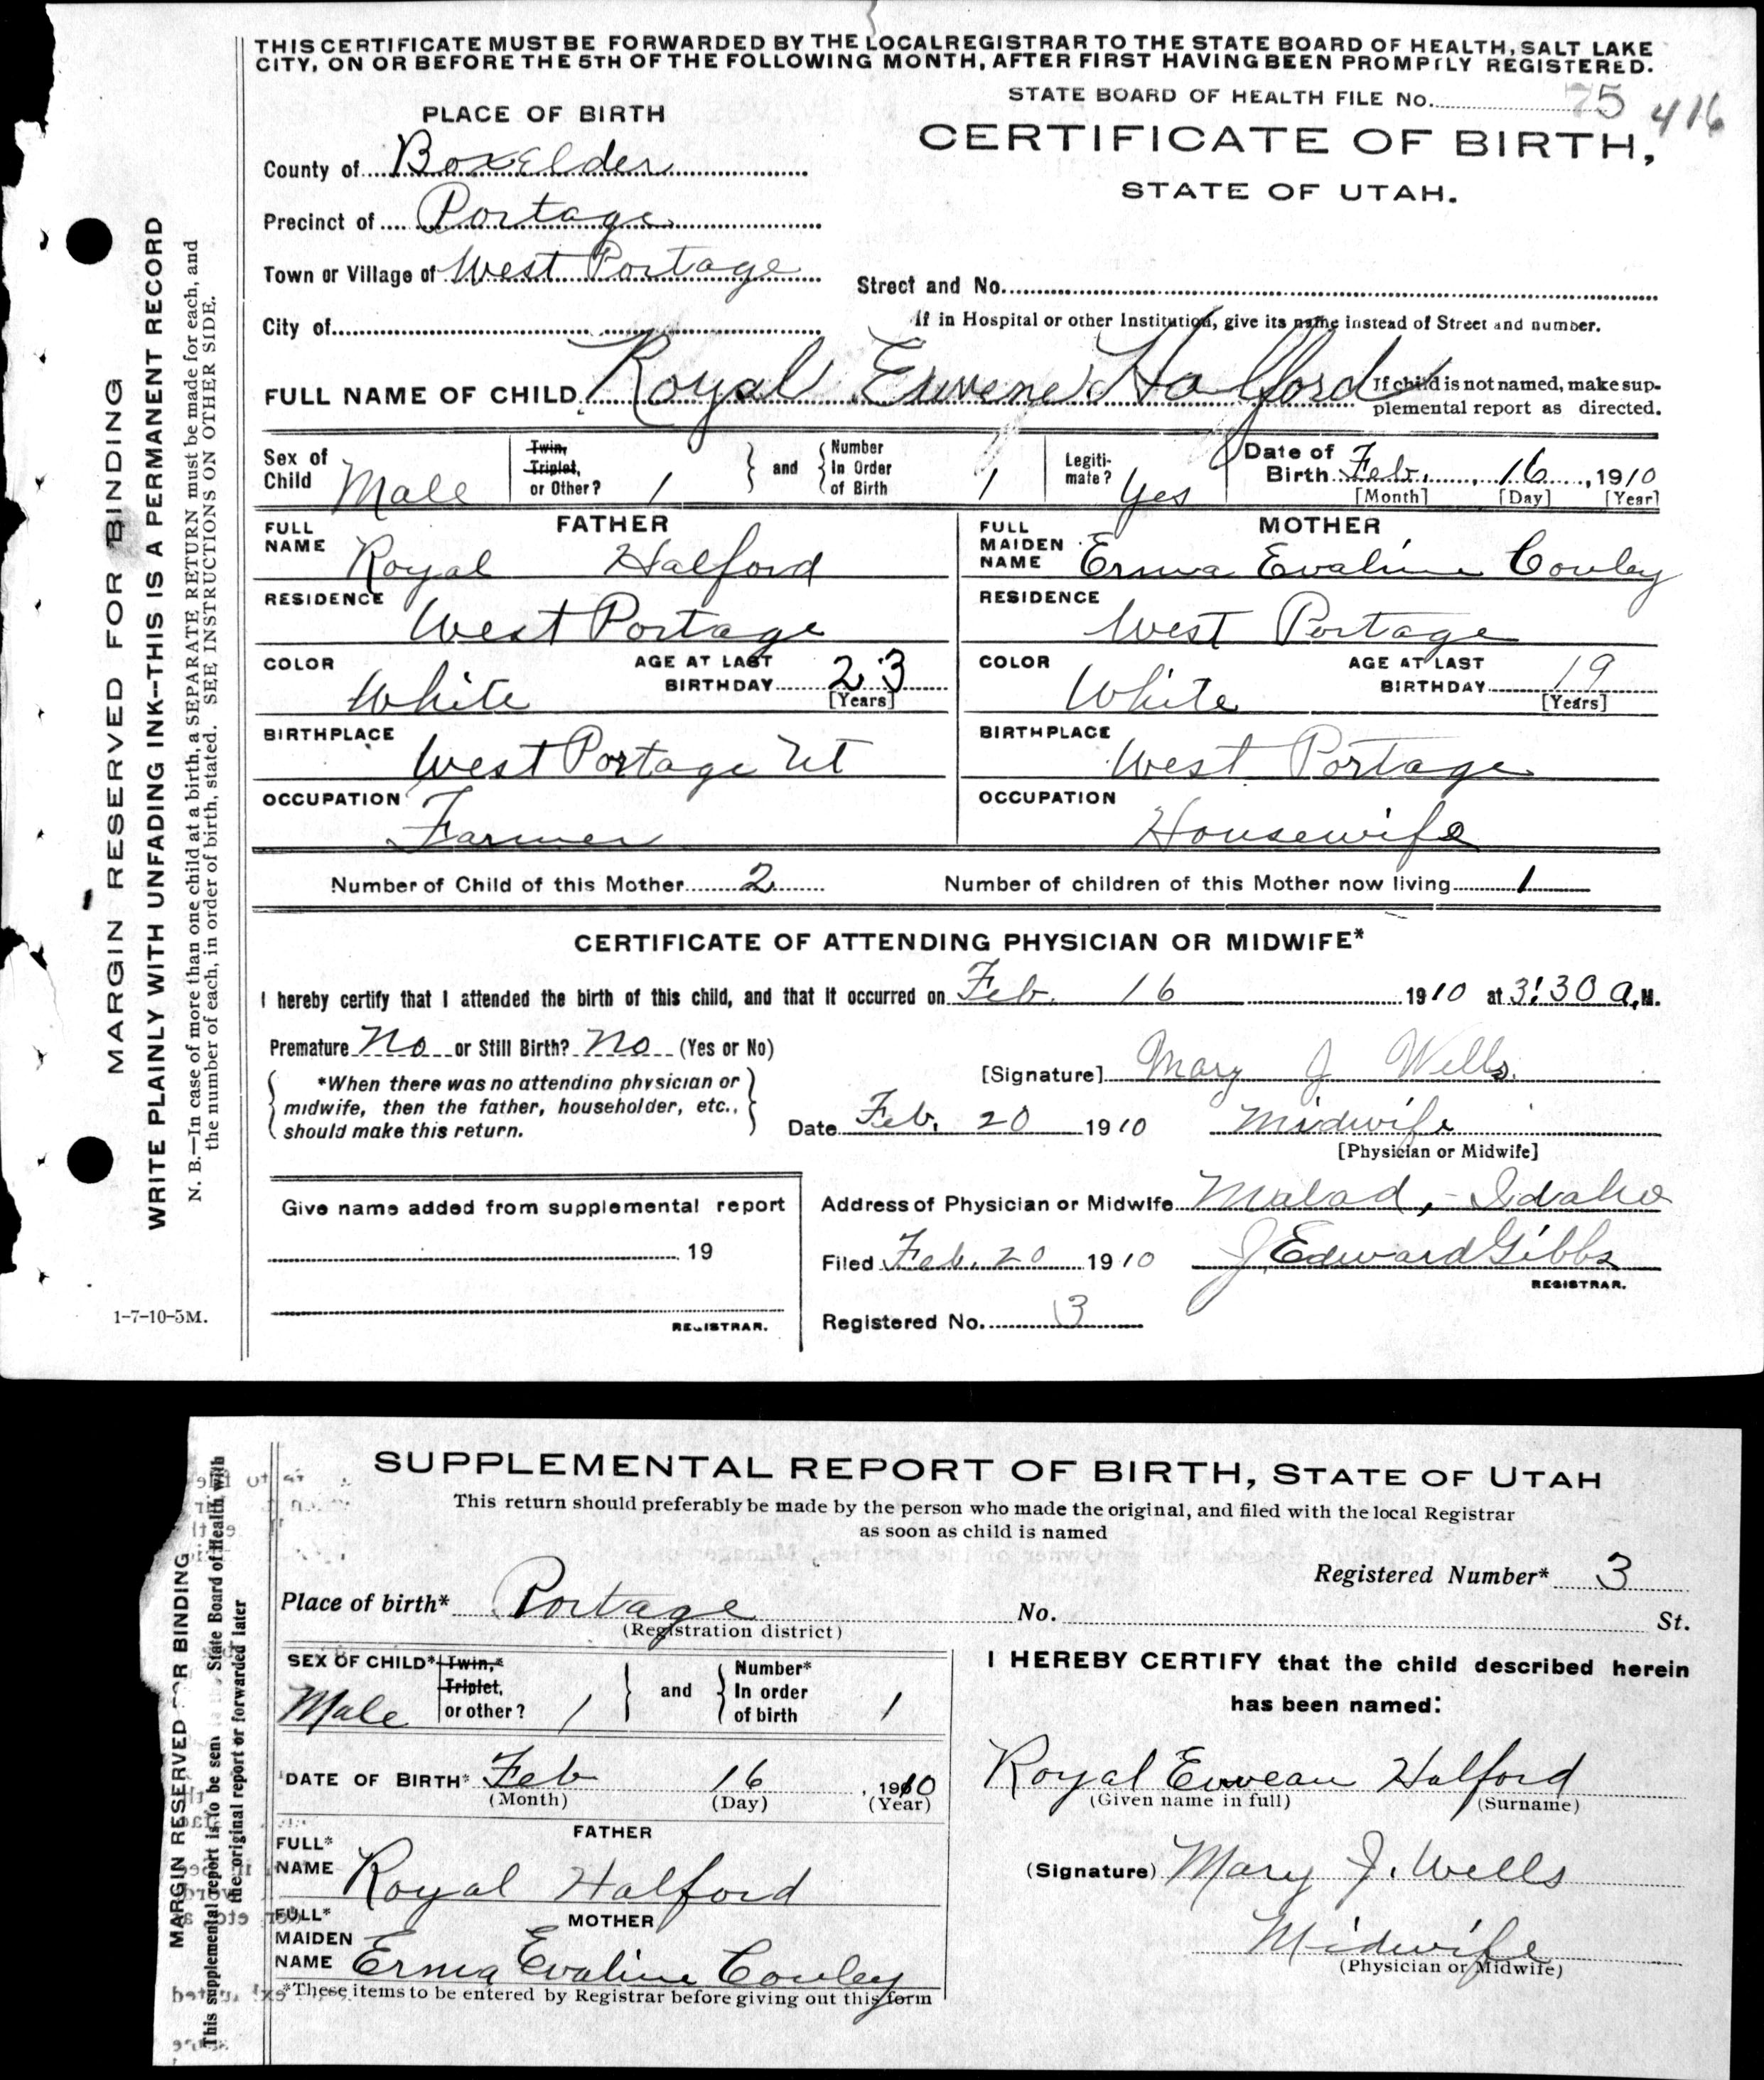 THIS CERTIFICATE MUST BE FORWARDED BY THE LOCAL REGISTRAR TO THE STATE BOARD OF HEALTH, SALT LAKE
CITY, ON OR BEFORE THE 5TH OF THE FOLLOWING MONTH, AFTER FIRST HAVING BEEN PROMPTLY REGISTERED.
STATE BOARD OF HEALTH FILE No. 75 416
PLACE OF BIRTH
CERTIFICATE OF BIRTH,
STATE OF UTAH.
County of Boxelder
Precinct of Portage
Town or Village of West Portage
Street and No.
City of
If in Hospital or other Institution, give its name instead of Street and number.
FULL NAME OF CHILD Royal Euvene Halford
If child is not named, make sup-
plemental report as directed.
Sex of Child Male
Twin, Triplet, or Other? 1
and Number In Order of Birth 1
Legiti-mate? Yes
Date of Birth Feb. 16, 1910
[Month] [Day] [Year]
FATHER
FULL NAME Royal Halford
RESIDENCE West Portage
COLOR White
AGE AT LAST BIRTHDAY 23
[Years]
BIRTHPLACE West Portage Ut
OCCUPATION Farmer
MOTHER
FULL MAIDEN NAME Erma Evaline Cowley
RESIDENCE West Portage
COLOR White
AGE AT LAST BIRTHDAY 19
[Years]
BIRTHPLACE West Portage
OCCUPATION Housewife
Number of Child of this Mother 2
Number of children of this Mother now living 1
CERTIFICATE OF ATTENDING PHYSICIAN OR MIDWIFE*
I hereby certify that I attended the birth of this child, and that it occurred on Feb. 16 1910 at 3:30 a.M.
Premature No or Still Birth? No (Yes or No)
*When there was no attending physician or
midwife, then the father, householder, etc.,
should make this return.
[Signature] Mary J Wells.
Date Feb. 20 1910 Midwife
[Physician or Midwife]
Give name added from supplemental report
19
REGISTRAR.
Address of Physician or Midwife Malad, - Idaho
Filed Feb. 20 1910 J Edward Gibbs
REGISTRAR.
Registered No. 3
MARGIN RESERVED FOR BINDING
WRITE PLAINLY WITH UNFADING INK--THIS IS A PERMANENT RECORD
N. B.—In case of more than one child at a birth, a SEPARATE RETURN must be made for each, and
the number of each, in order of birth, stated. SEE INSTRUCTIONS ON OTHER SIDE.
1-7-10-5M.
SUPPLEMENTAL REPORT OF BIRTH, STATE OF UTAH
This return should preferably be made by the person who made the original, and filed with the local Registrar
as soon as child is named
Registered Number* 3
Place of birth* Portage
(Registration district)
No. St.
SEX OF CHILD* Male
Twin,* Triplet, or other? 1
and Number* In order of birth 1
DATE OF BIRTH* Feb 16, 1910
(Month) (Day) (Year)
FATHER
FULL* NAME Royal Halford
MOTHER
FULL* MAIDEN NAME Erma Evaline Cowley
*These items to be entered by Registrar before giving out this form
I HEREBY CERTIFY that the child described herein
has been named:
Royal Euvean Halford
(Given name in full) (Surname)
(Signature) Mary J. Wells
Midwife
(Physician or Midwife)
MARGIN RESERVED FOR BINDING
This supplemental report is to be sent State Board of Health with
the original report or forwarded later